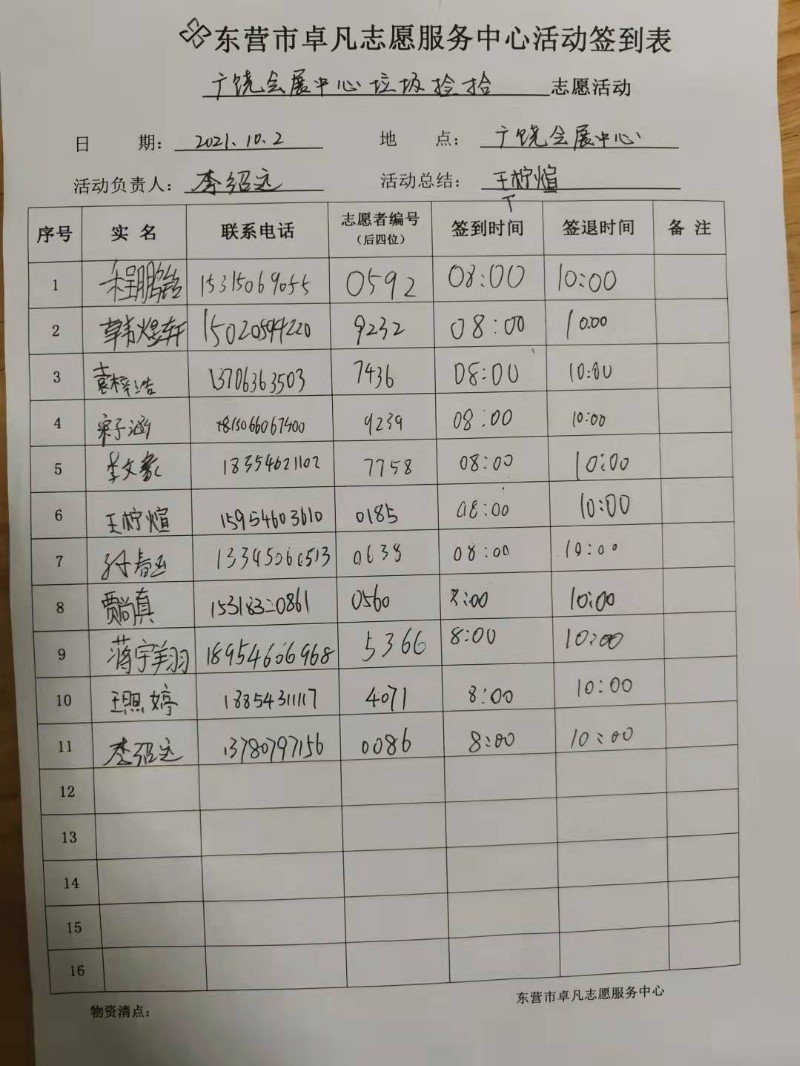 东营市卓凡志愿服务中心活动签到表
广饶会展中心垃圾捡拾 志愿活动
日 期: 2021.10.2 地 点: 广饶会展中心
活动负责人: 李绍远 活动总结: 王柠煊
序号 实 名 联系电话 志愿者编号（后四位） 签到时间 签退时间 备 注
1 15315069055 0592 08:00 10:00
2 韩煜轩 9232 08:00 10:00
3 袁梓浩 13706363503 7436 08:00 10:00
4 宋子涵 15066067400 9239 08:00 10:00
5 李文豪 18354621102 7758 08:00 10:00
6 王柠煊 15954603610 0185 08:00 10:00
7 13345060513 0638 08:00 10:00
8 贾尚真 0560 8:00 10:00
9 蒋宇翔 18954606968 5366 8:00 10:00
10 王照婷 18854311117 4071 8:00 10:00
11 李绍远 13780797156 0086 8:00 10:00
12
13
14
15
16
物资清点: 东营市卓凡志愿服务中心